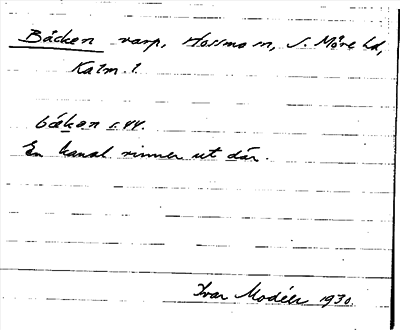 Bäcken varp, Hossmo sn, S. Möre hd,
Kalm. l.
bäken s. 44.
En kanal rinner ut där.
Ivar Modéer 1930.